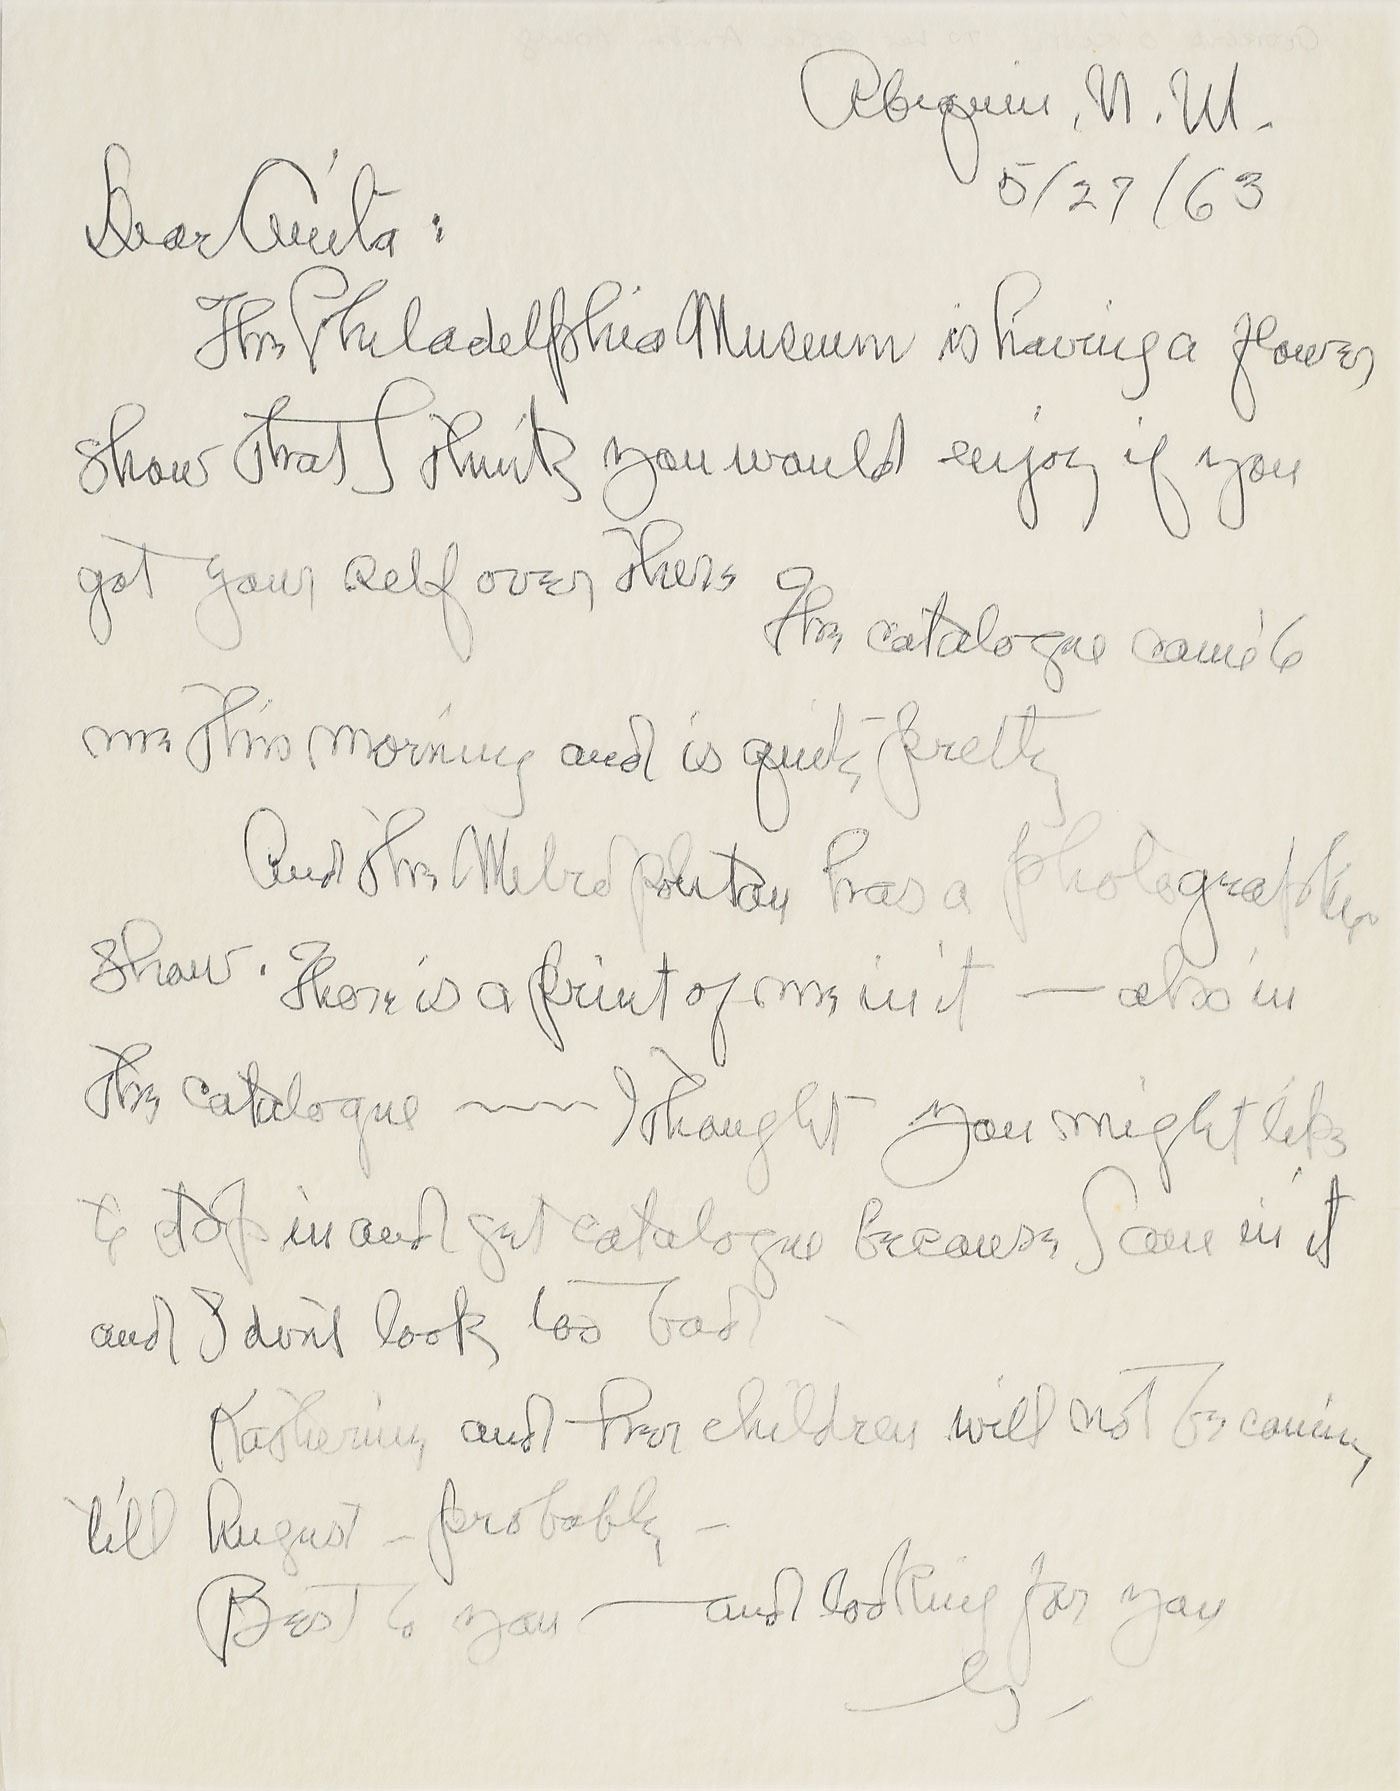 Abiquiu, N.M.
5/27/63
Dear Anita:
The Philadelphia Museum is having a flower
show that I think you would enjoy if you
got your self over there
The catalogue came to
me this morning and is quite pretty
And the Metropolitan has a photographer
show. There is a print of me in it — also in
the catalogue ~~~ I thought you might like
to stop in and get catalogue because I am in it
and I don't look too bad -
Katherine and her children will not be coming
till August - probably -
Best to you — and looking for you
G—